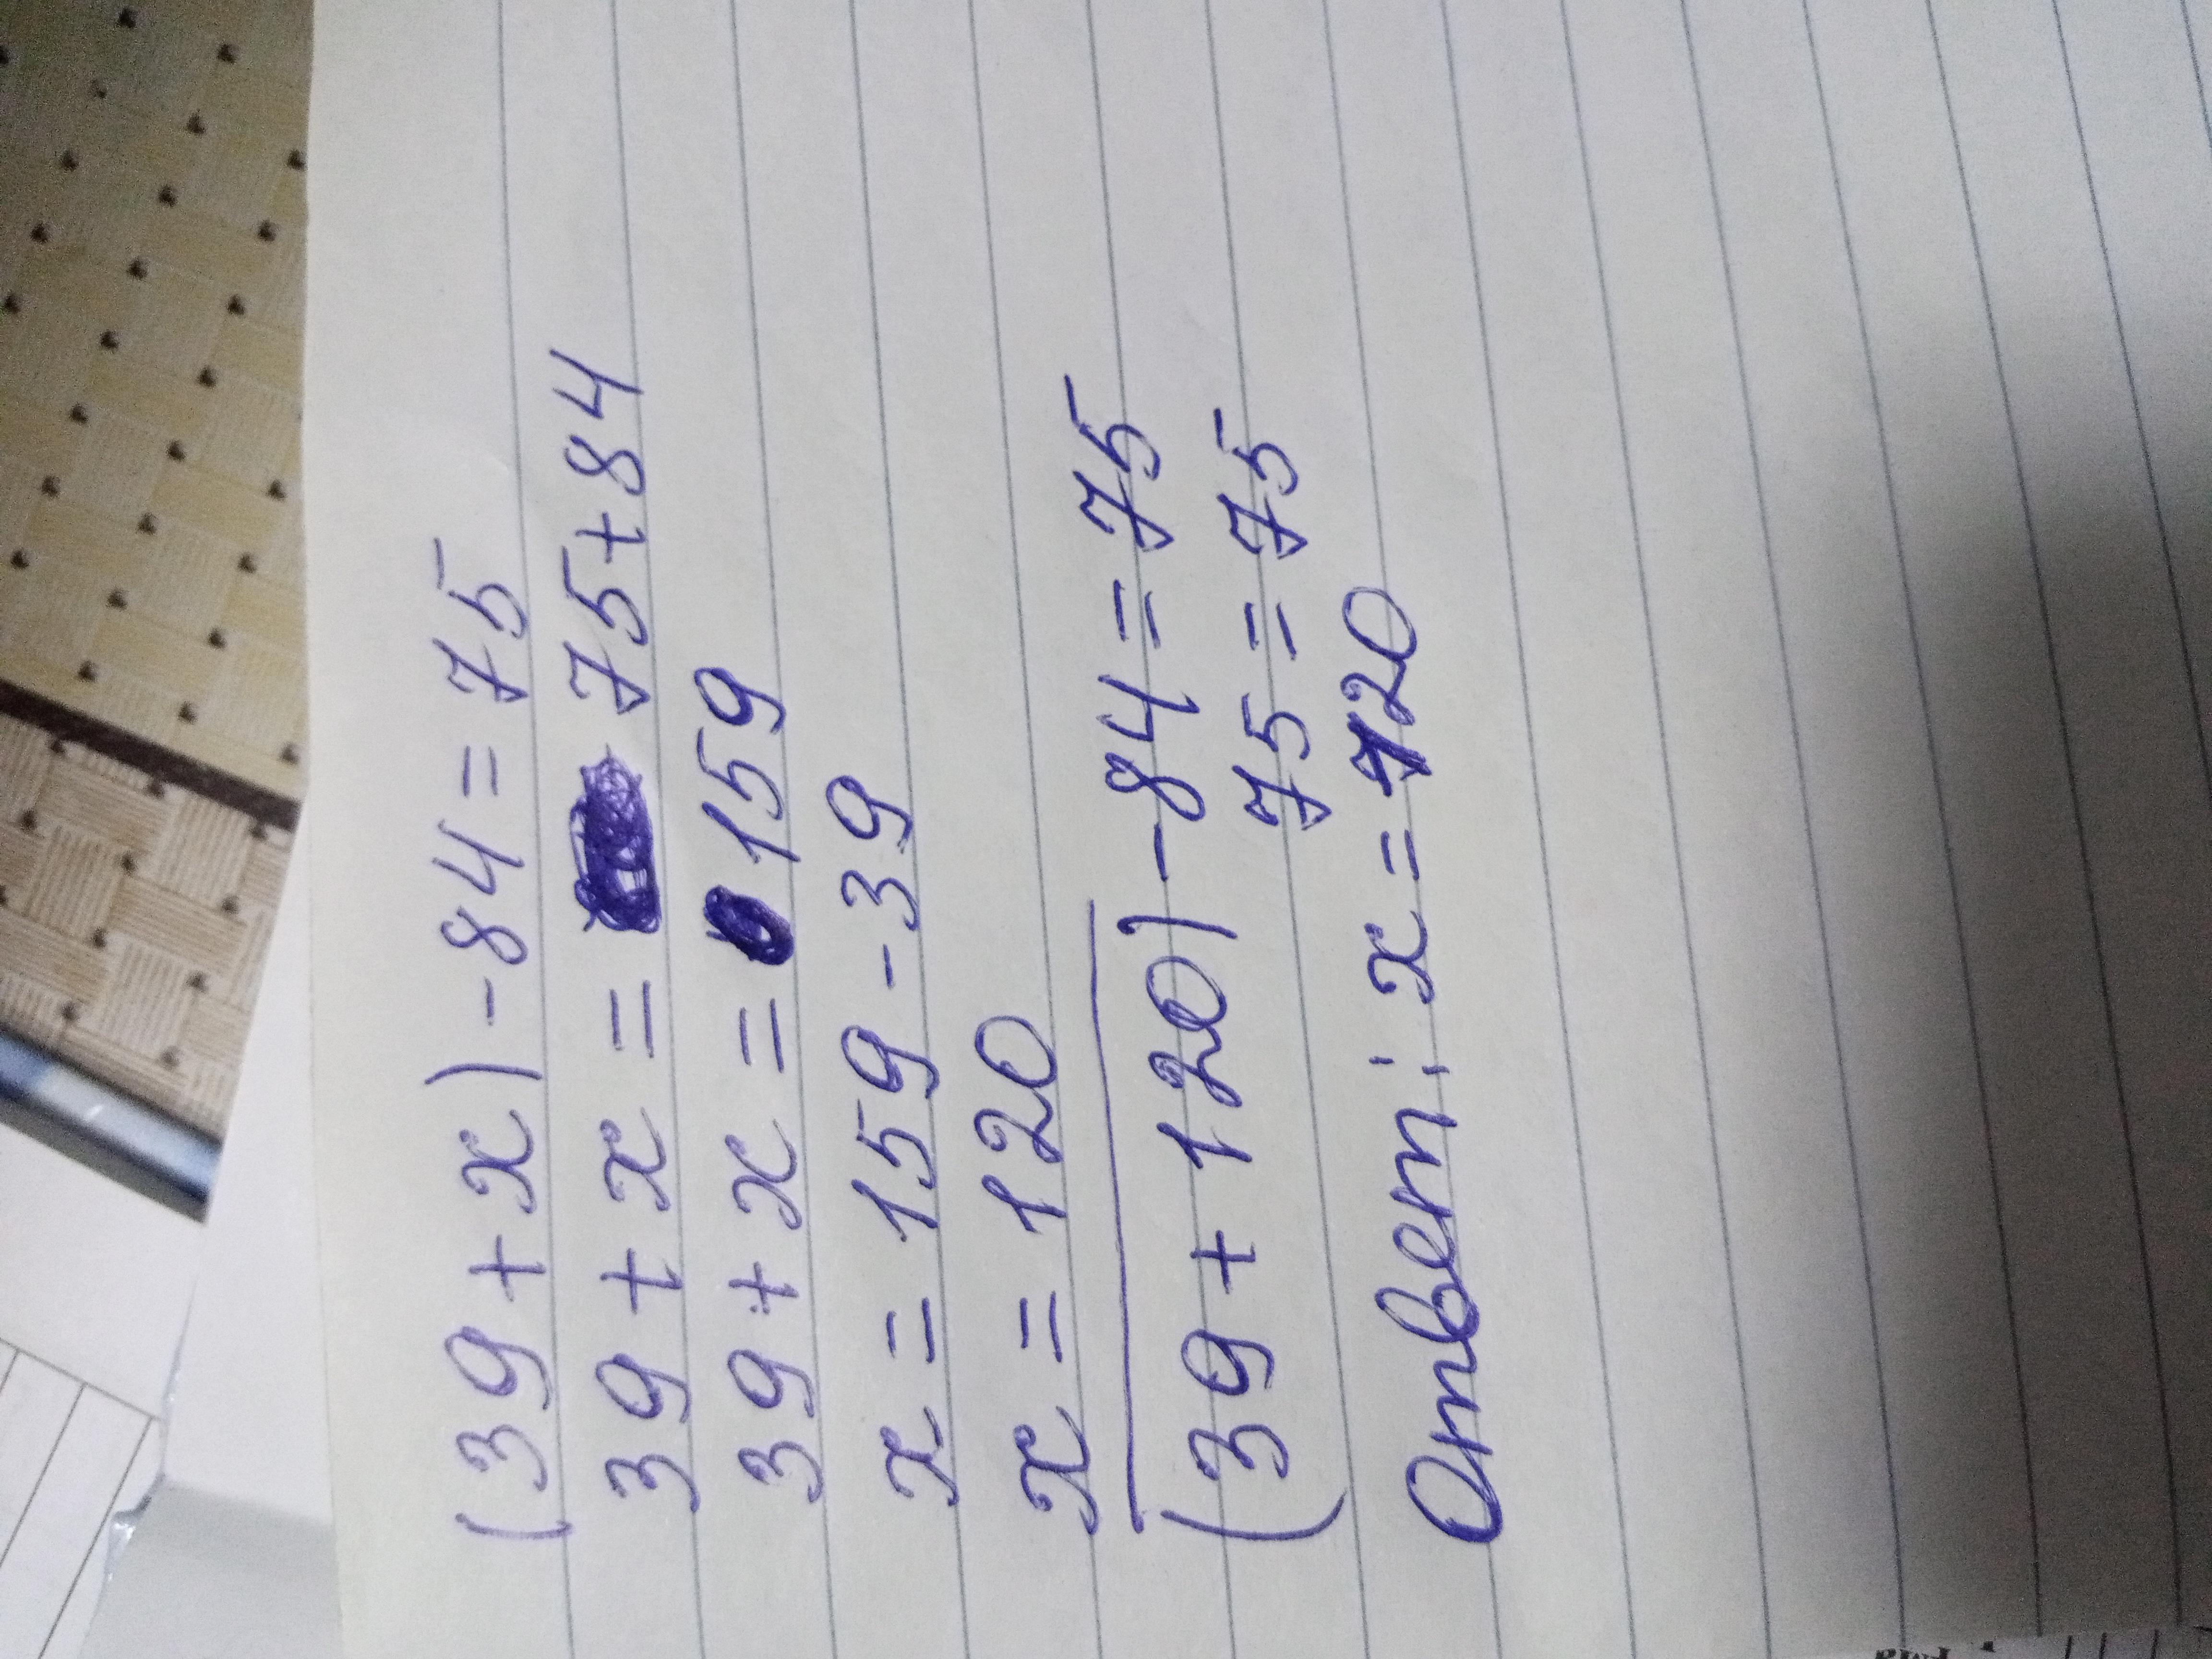 (39 + x) - 84 = 75
39 + x = 75 + 84
39 + x = 159
x = 159 - 39
x = 120
(39 + 120) - 84 = 75
75 = 75
Ответ: x = 120